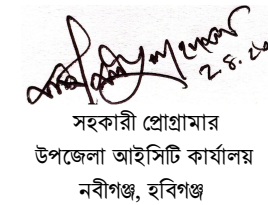 ২.৪.২০
সহকারী প্রোগ্রামার
উপজেলা আইসিটি কার্যালয়
নবীগঞ্জ, হবিগঞ্জ